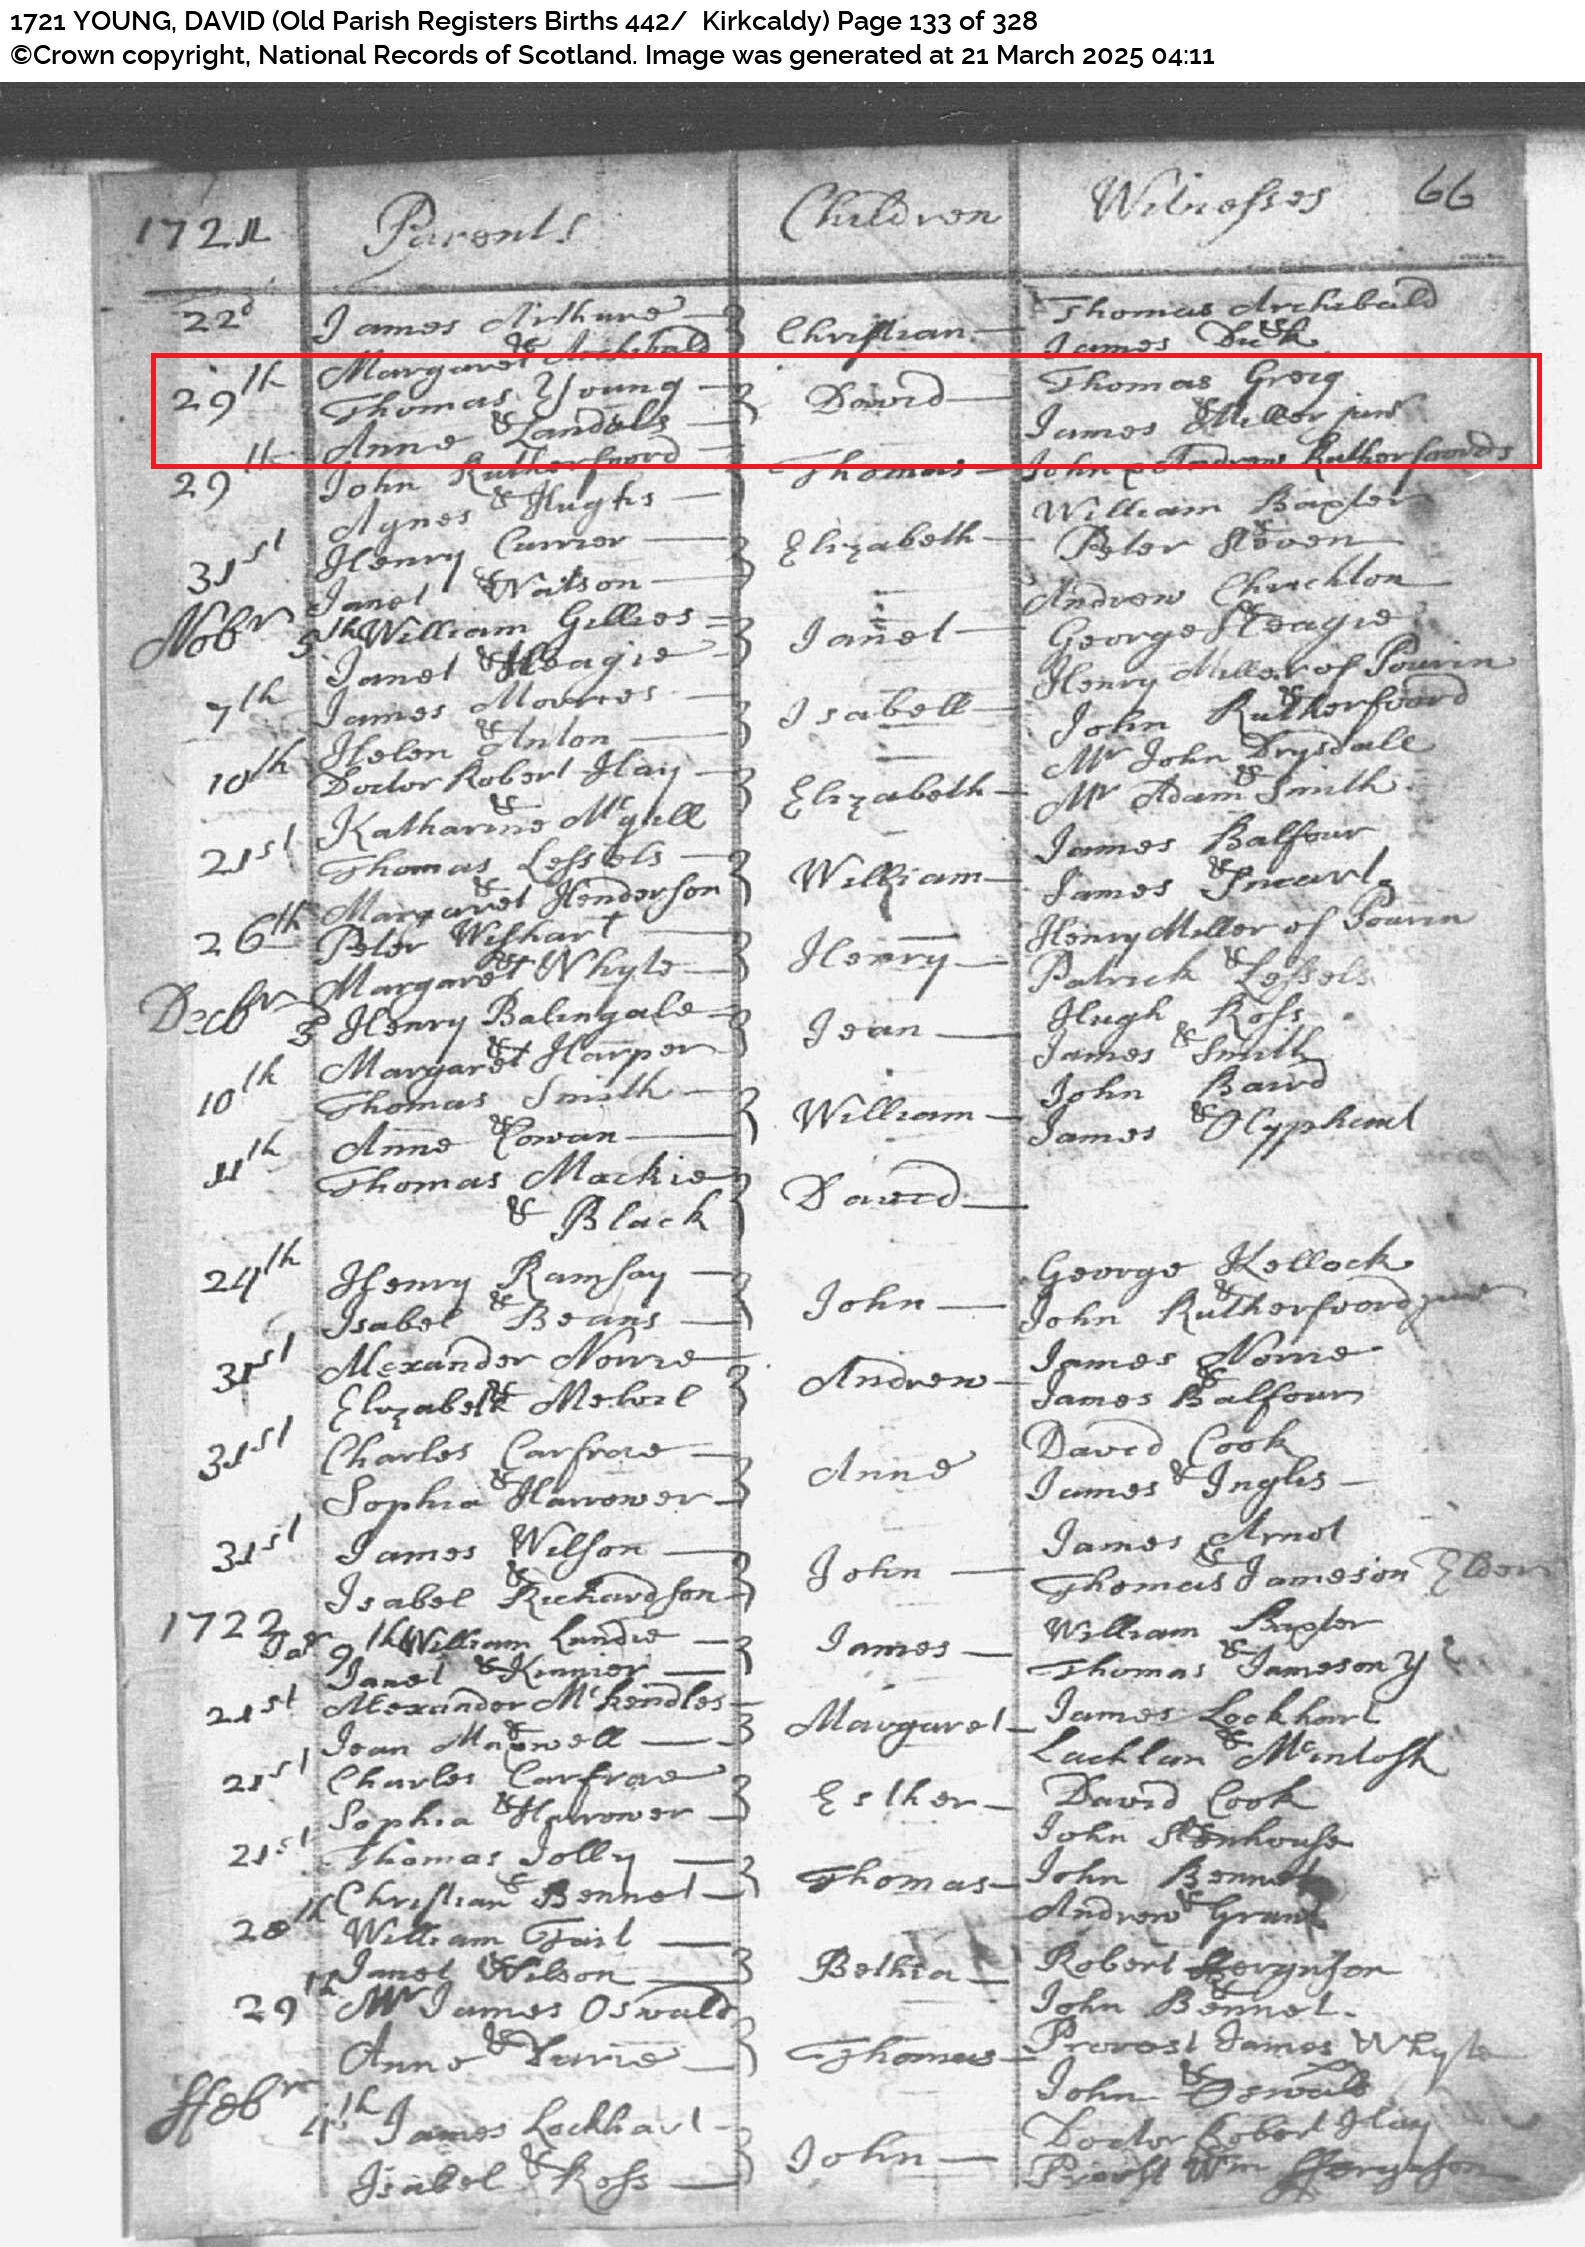 1721 YOUNG, DAVID (Old Parish Registers Births 442/ Kirkcaldy) Page 133 of 328
©Crown copyright, National Records of Scotland. Image was generated at 21 March 2025 04:11
1721 Parents Children Witnesses 66
22d James Arthure Christian Thomas Archibald
& Margaret Archibald & James Dick
29th Thomas Young David Thomas Greig
Anne & Landels James & Miller junr
29th John Rutherfoord Thomas John & Andrew Rutherfoords
Agnes & Hughs William Baxter
31st Henry Currier Elizabeth & Peter Steven
Janet & Watson Andrew Chrichton
Nobr 5th William Gillies Janet George & Heagie
Janet & Heagie Henry Miller of Pourin
7th James Moores Isabell & John Rutherfoord
Helen & Anton Mr John Drysdale
10th Doctor Robert Hay Elizabeth & Mr Adam Smith
& Katharine Mcgill James Balfour
21st Thomas Lessels William & James
& Margaret Henderson Henry Miller of Pourin
26th Peter Wishart Henry Patrick & Lessels
& Margaret Whyte Hugh Ross
Decbr 3 Henry Balingale Jean James & Smith
Margaret & Harper John Baird
10th Thomas Smith William James & Olyphant
Anne & Cowan
11th Thomas Mackie David
& Black
24th Henry Ramsay John George Kellock
Isabel & Beans & John Rutherfoord
31st Alexander Norrie Andrew James Norrie
Elizabeth & Melvil James & Balfour
31st Charles Carfrae Anne David Cook
Sophia & Harrower James & Inglis
31st James Wilson John James Arnot
Isabel & Richardson & Thomas Jameson Elder
1722
Jar 9th William Lundie James William Baxter
Janet & Kinnier Thomas & Jameson Y
21st Alexander McKendles Margaret James Lockhart
Jean & Maxwell Lachlan & Mcintosh
21st Charles Carfrae Esther David Cook
Sophia & Harrower John Stenhouse
21st Thomas Jolly Thomas John Bennet
Christian & Bennet Andrew & Grant
28th William Tait Bethia Robert ffergusson
Janet & Wilson John Bennet
29th Mr James Oswald Thomas Provost James Whyte
Anne & Durie John & Oswald
ffebr 4th James Lockhart John Doctor Robert Hay
Isabel & Ross Provost Wm ffergusson